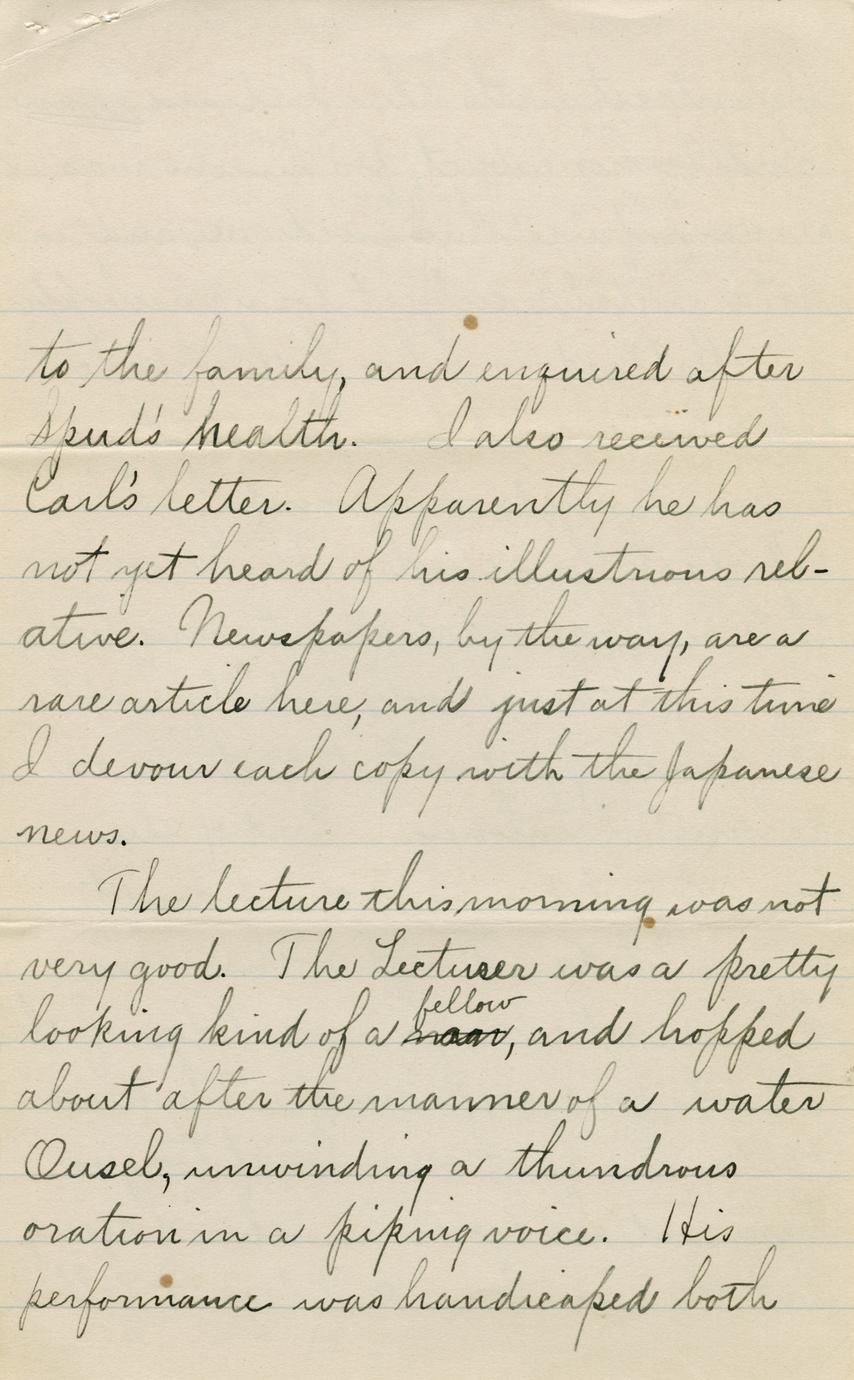 to the family, and enquired after
Spud's health. I also received
Carl's letter. Apparently he has
not yet heard of his illustrious rel-
ative. Newspapers, by the way, are a
rare article here, and just at this time
I devour each copy with the Japanese
news.
The lecture this morning was not
very good. The Lecturer was a pretty
fellow
looking kind of a man, and hopped
about after the manner of a water
Ousel, unwinding a thundrous
oration in a piping voice. His
performance was handicaped both